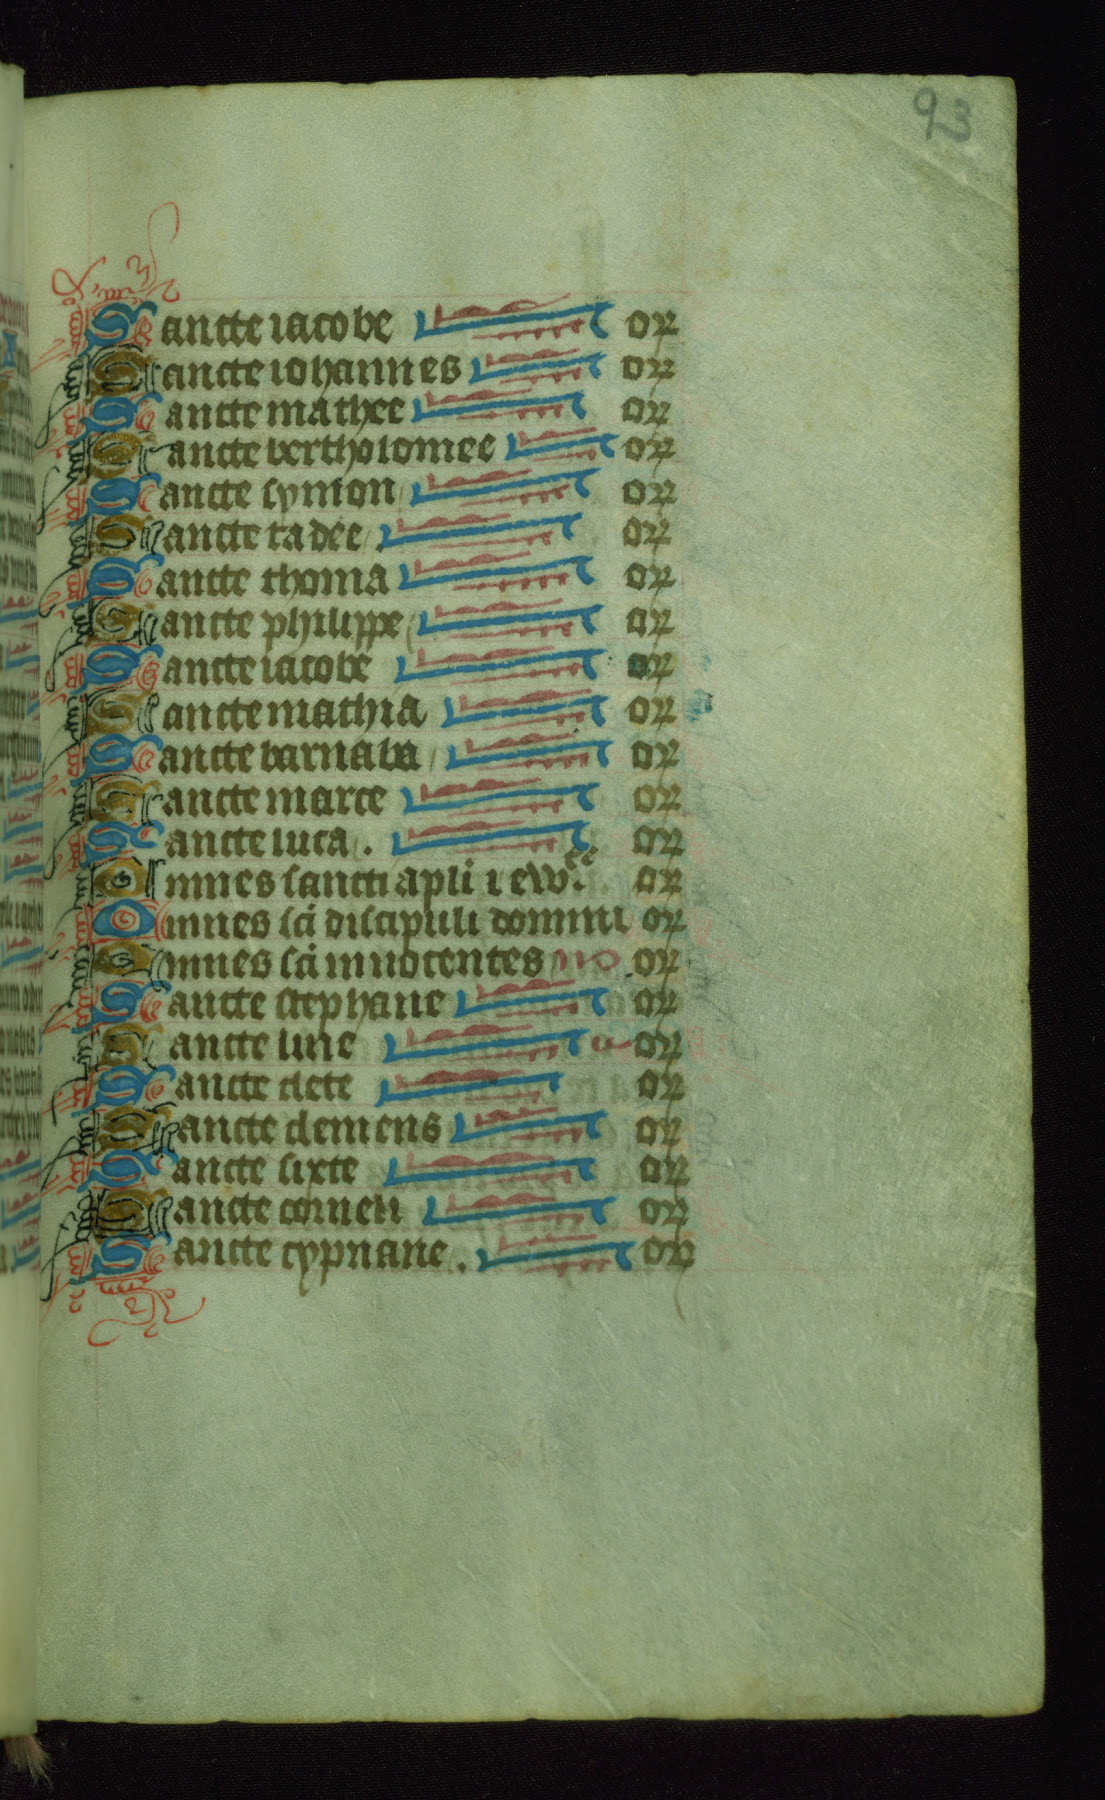 93
Sancte iacobe or
Sancte iohannes or
Sancte mathee or
Sancte bertholomee or
Sancte symon or
Sancte tadee . or
Sancte thoma or
Sancte philippe or
Sancte iacobe or
Sancte mathia or
Sancte barnaba or
Sancte marce or
Sancte luca . or
Omnes sancti apli ⁊ ewᵉᵉ. or
Omnes sci discipuli domini or
Omnes sci innocentes or
Sancte stephane or
Sancte line or
Sancte clete or
Sancte clemens or
Sancte sixte or
Sancte corneli or
Sancte cypriane . or